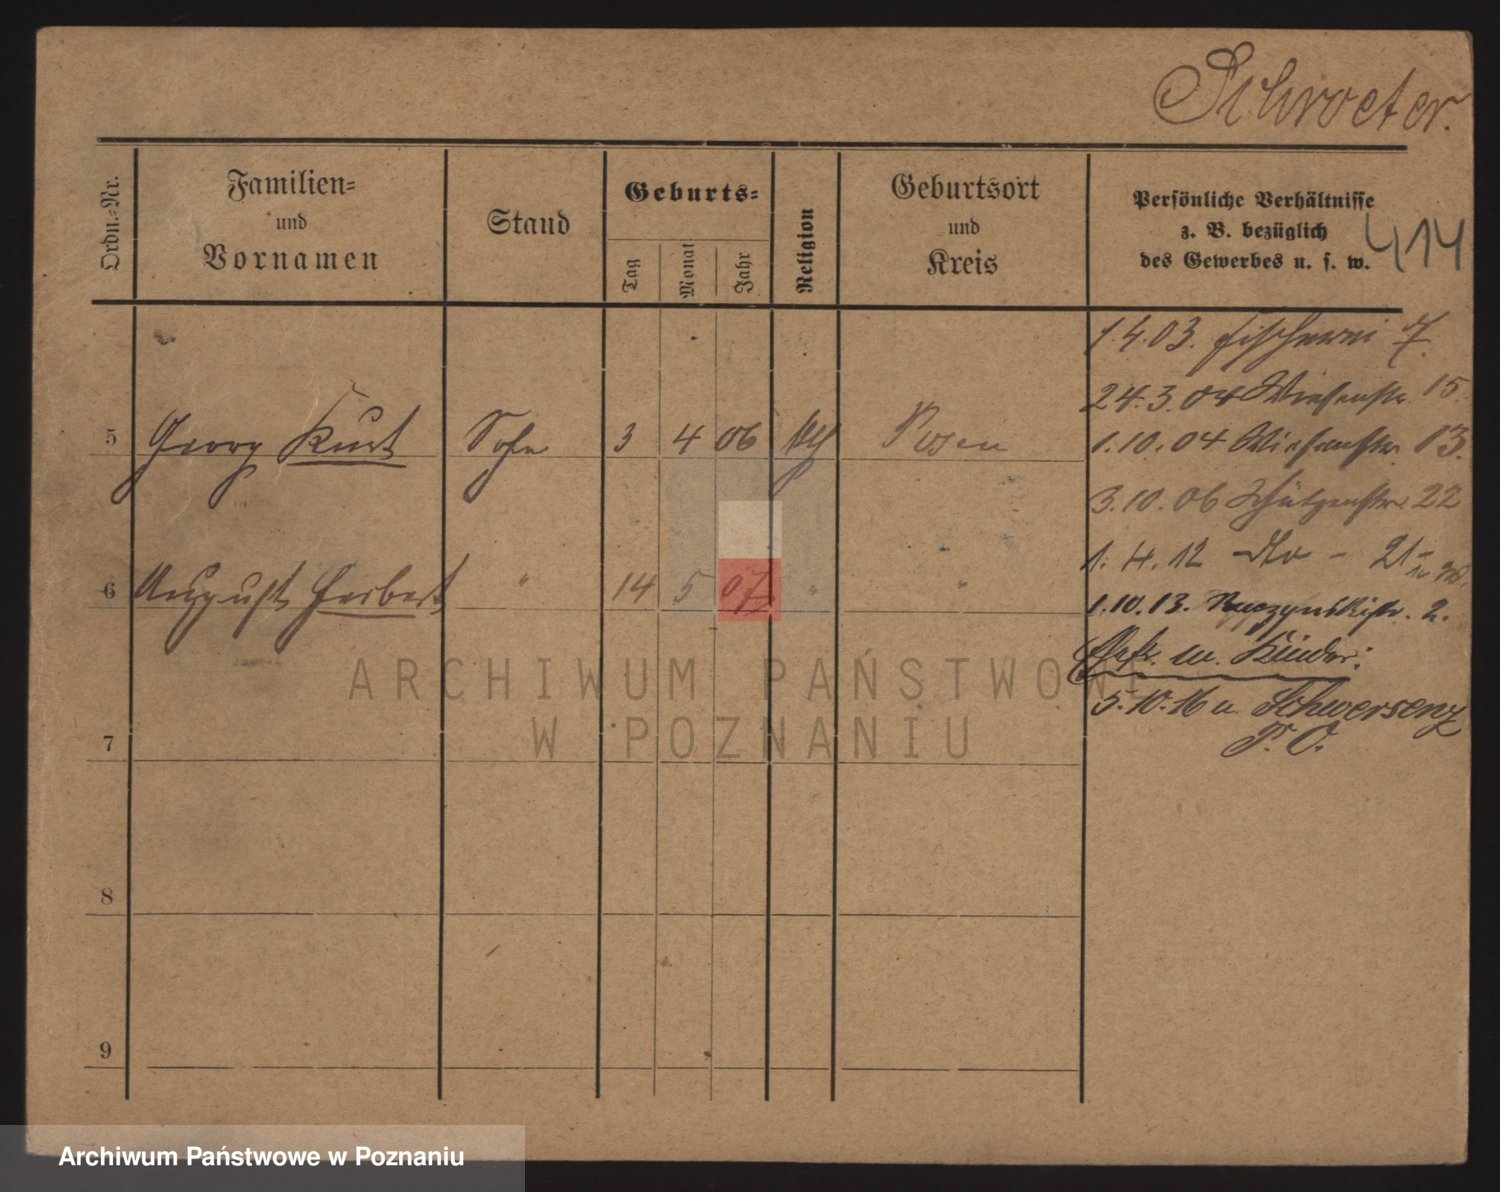 Schroeter.
Ordn.-Nr.
Familien-
und
Vornamen
Stand
Geburts-
Tag
Monat
Jahr
Religion
Geburtsort
und
Kreis
Persönliche Verhältnisse
z. B. bezüglich
des Gewerbes u. s. w.
414
1.4.03. Fischerei 7.
24.3.04 Wiesenstr. 15.
1.10.04 Wiesenstr. 13.
5 Georg Kurt Sohn 3 4 06 Posen
3.10.06 Schützenstr. 22
1.4.12 dto - 21
6 August Herbert " 14 5 07 " "
1.10.13. 2.
Ehefr. m. Kinder:
5.10.16 n. Schwersenz
P. O.
7
8
9
ARCHIWUM PAŃSTWOWE
W POZNANIU
Archiwum Państwowe w Poznaniu